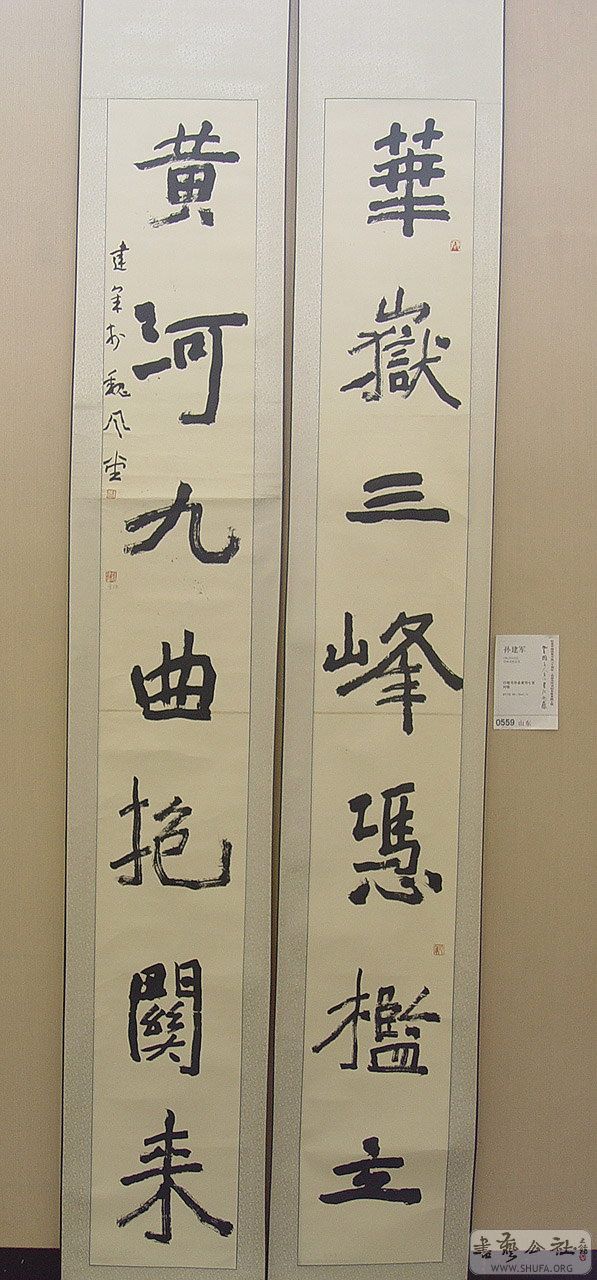 華嶽三峰憑檻立
黃河九曲抱關来
建軍於魏風堂
孙建军
0559 山东
書藝公社
WWW.SHUFA.ORG